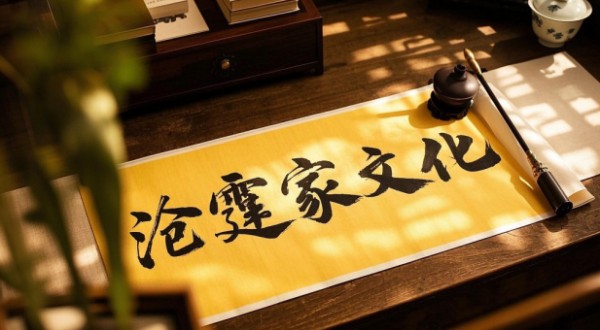 沧霆家文化